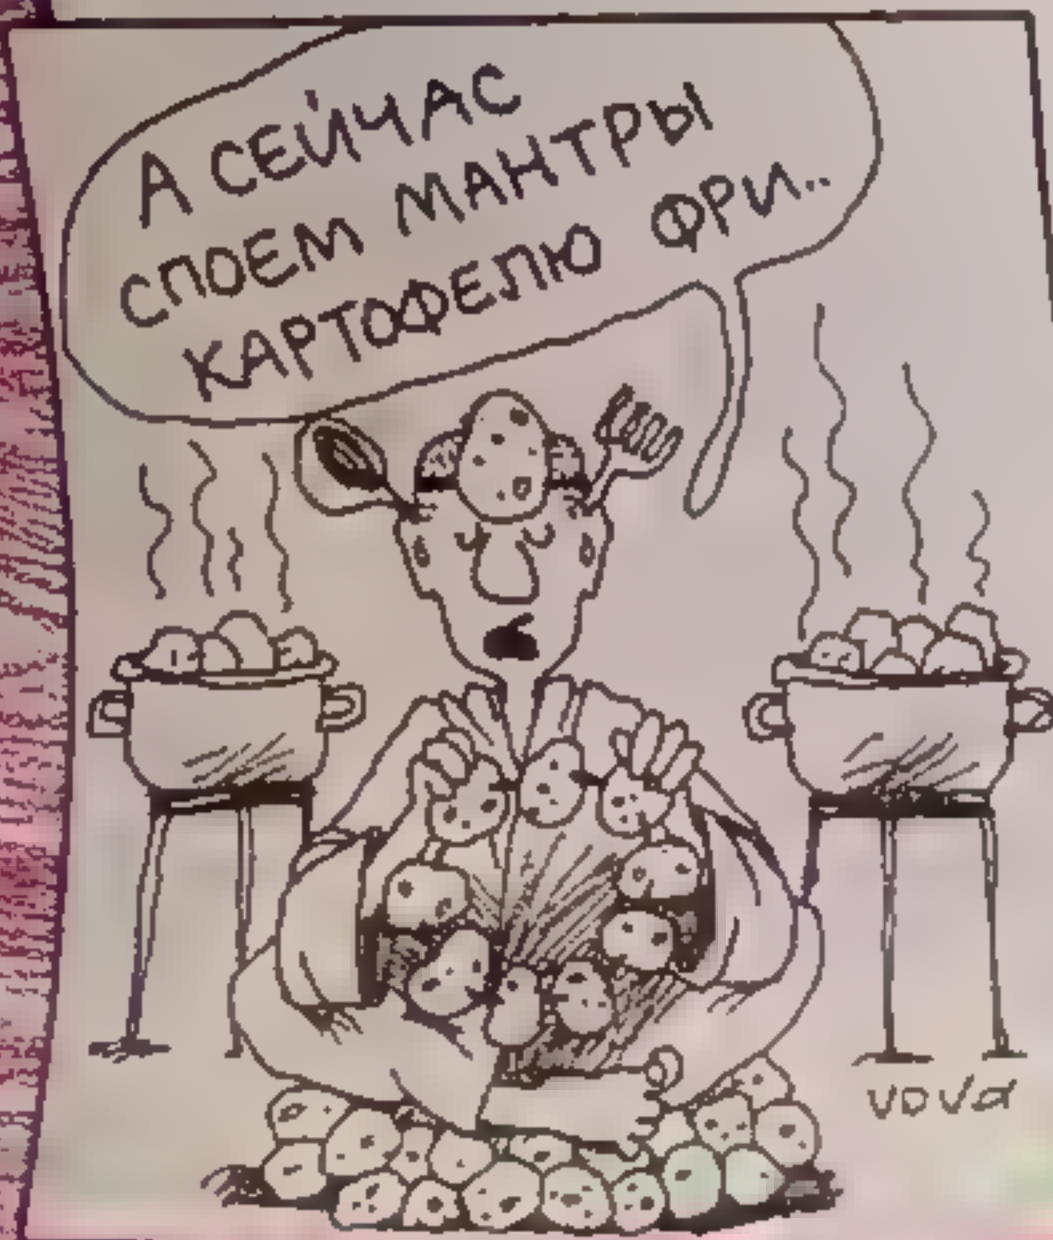 А СЕЙЧАС
СПОЕМ МАНТРЫ
КАРТОФЕЛЮ ФРИ..
VOVA